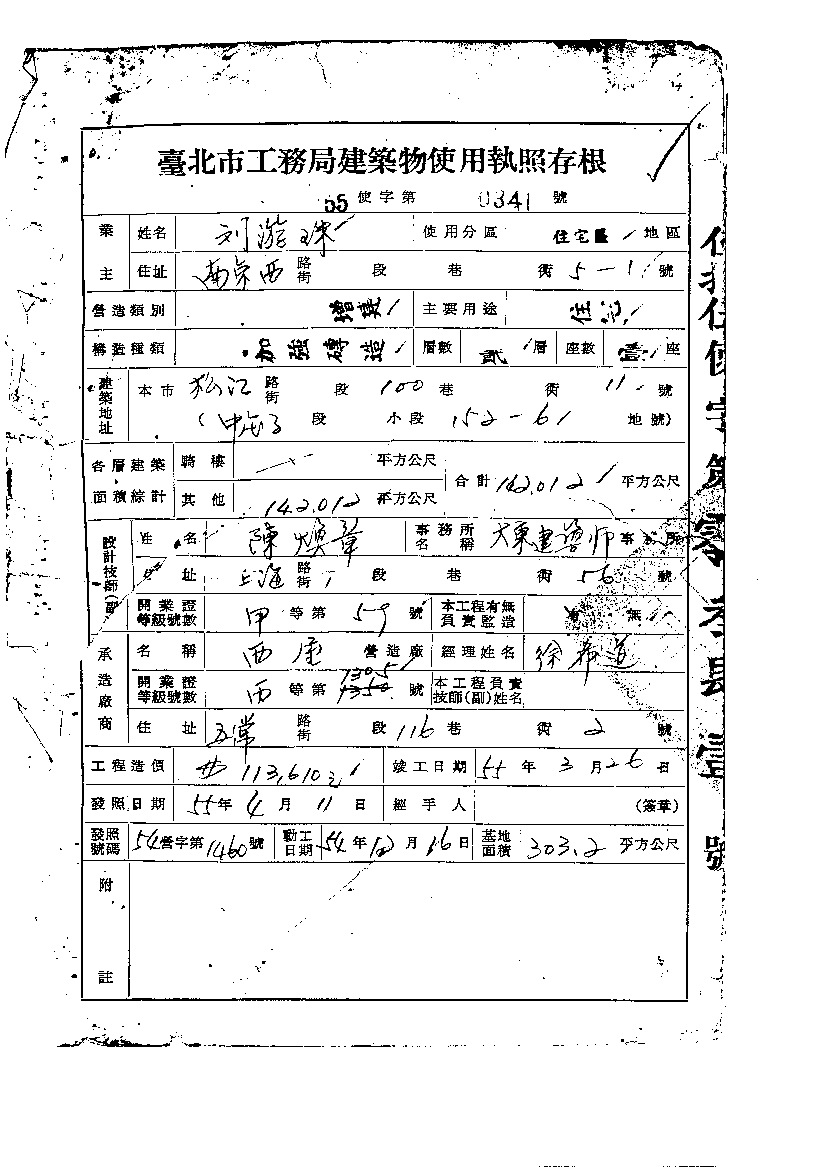 臺北市工務局建築物使用執照存根
55 使字第 0341 號
業主 姓名 刘瀅珠 使用分區 住宅區 地區
住址 南京西 路街 段 巷 衖 5-1 號
營造類別 增建 主要用途 住宅
構造種類 加強磚造 層數 貳 層 座數 壹 座
建築地址 本市 松江 路街 段 100 巷 衖 11 號
( 段 小段 152-61 地號)
各層建築面積綜計 騎樓 平方公尺 合計 142.012 平方公尺
其他 142.012 平方公尺
設計技師(副) 姓名 陳煥章 事務所名稱 大東建築师事務所
住址 上海 路街 段 巷 衖 56 號
開業證等級號數 甲 等第 59 號 本工程有無負責監造 無
承造廠商 名稱 西屋 營造廠 經理姓名 徐希道
開業證等級號數 丙 等第 1305 號 本工程負責技師(副)姓名
住址 五常 路街 段 116 巷 衖 2 號
工程造價 113,610 竣工日期 55 年 3 月 26 日
發照日期 55 年 4 月 11 日 經手人 (簽章)
發照號碼 54 營字第 1460 號 動工日期 54 年 12 月 16 日 基地面積 303.2 平方公尺
附註
使字第零參肆壹號